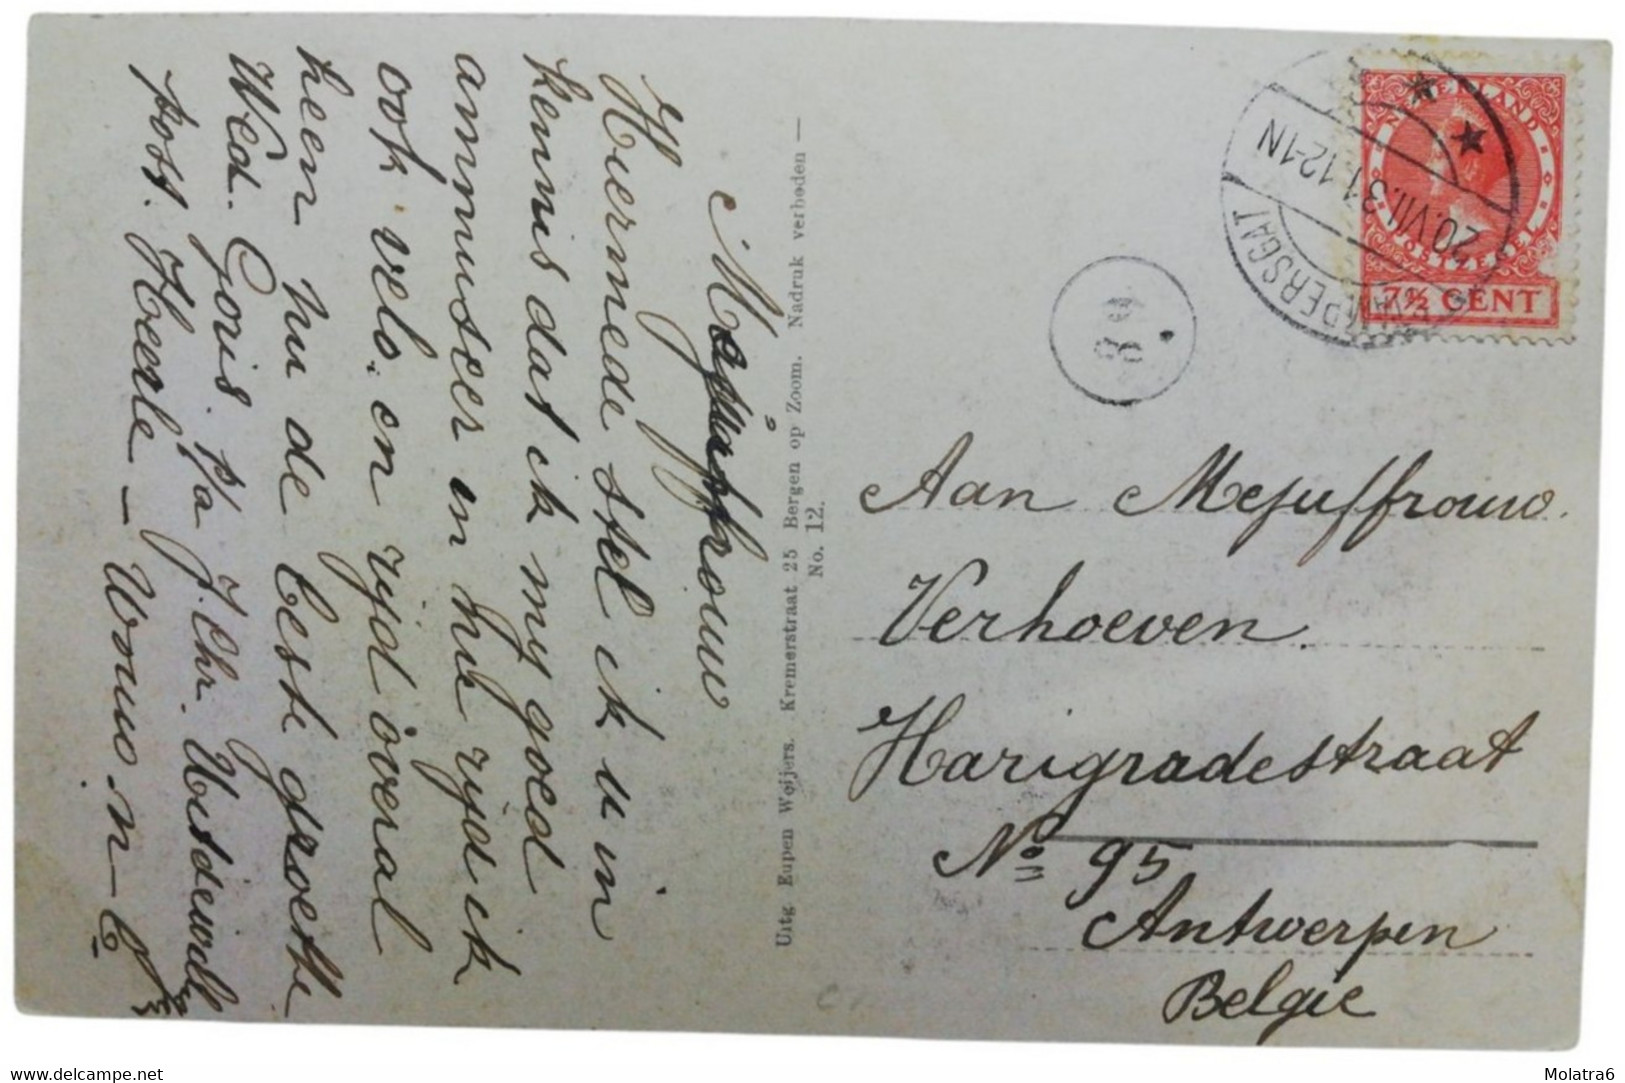 Mejuffrouw
Hiermede stel ik u in
kennis dat ik my goed
ammuseer en hier rijd ik
ook velo. en rijd overal
heen nu de beste groette
Wed. Goris. p/a J. Chr.
post. Heerle – Wouw. n–B
Uitg Eupen Weijers. Kremerstraat 25 Bergen op Zoom. Nadruk verboden —
No. 12.
NEDERLAND
POSTZEGEL
7½ CENT
20.VII.31.12-1N
Aan Mejuffrouw.
Verhoeven.
Harigradestraat
No 95
Antwerpen
Belgie
www.delcampe.net
Molatra6